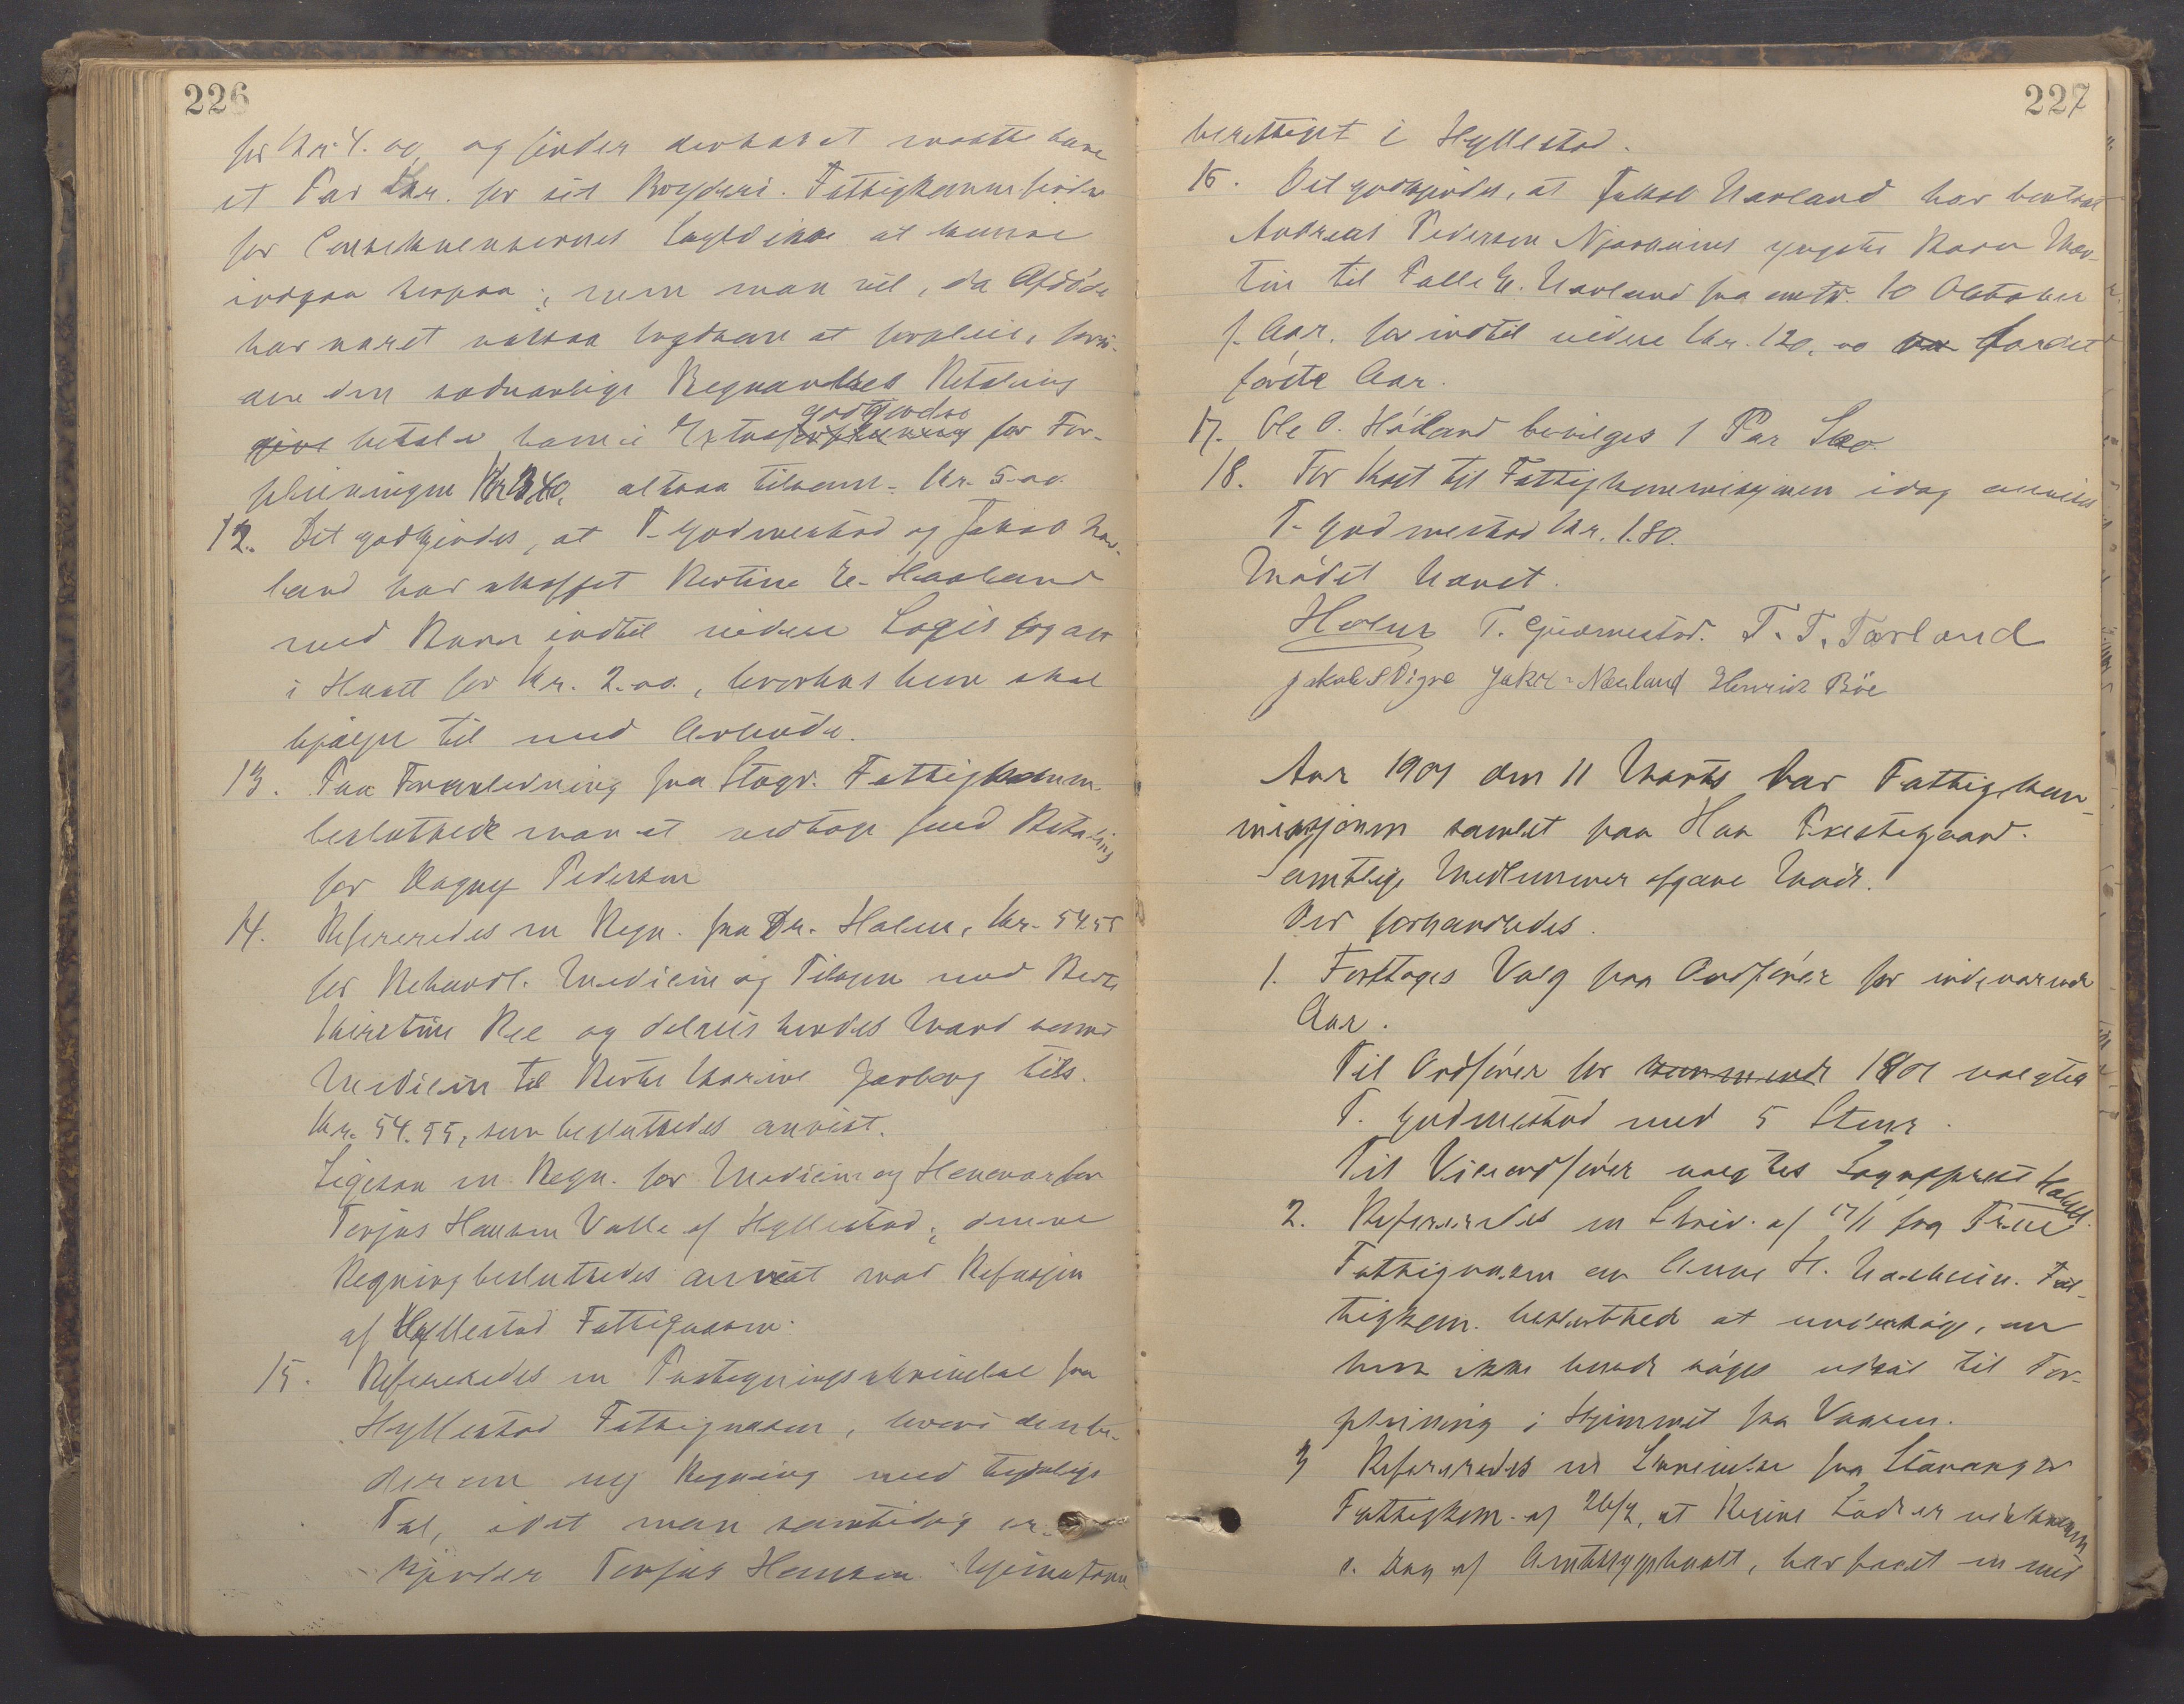 226
for Kr. 4.00, og finder derhos at maatte have
et Par Kr. for sit Bryderi. Fattigkomm. finder
for Consekvensernes Skyld ikke at kunne
indgaa herpaa; men man vil, da Afdöde
har været vanskelig at forpleie, foru-
den den sedvanlige Begravelses Betaling
give betale ham i Extra godtgjørelse for For-
pleiningen Kr. 3,40, altsaa tilsam. Kr. 5.00.
12. Det godkjendes, at T. Gudmestad og Jakob Nær-
land har skaffet Bertine E. Haaland
med Barn indtil videre Logis
i Huset for Kr. 2.00, hvorhos hun skal
hjælpe til med Arbeide.
13. Paa Foranledning fra Stavgr. Fattigkomm.
besluttede man at nedtage med Betaling
for Dagny Pedersen
14. Refereredes en Regn. fra Dr. Holm, Kr. 54.55
for Behandl. Medicin og Tilsyn med Berte
Kirstine Ree og delvis hendes Mand samt
Medicin til Berte Marine Jarberg tils.
Kr. 54.55, som besluttedes anvist.
Ligesaa en Regn. for Medicin og Honorar for
Terjus Hansen Valle af Hyllestad; denne
Regning besluttedes anvist mod Refusjon
af Hyllestad Fattigvæsen.
15. Refereredes en Paategningsskrivelse fra
Hyllestad Fattigvæsen, hvori denbe-
der om ny Regning med tydelige
Tal, idet man samtidig er-
kjender Terjus Hansen hjemstavns-
227
berettiget i Hyllestad.
16. Det godkjendes, at Jakob Nærland har bortsat
Andreas Pedersen Njærheims yngste Barn Mar-
tin til Palle E. Nærland fra omtr. 10 Oktober
f. Aar, for indtil videre Kr. 120,00 for det
förste Aar.
17. Ole O. Höiland bevilges 1 Par Sko.
18. For Kost til Fattigkommisjonen idag anvises
T. Gudmestad Kr. 1.80.
Mödet hævet.
Holm T. Gudmestad. T. T. Tærland
Jakob S Vigre Jakob Nærland Henrik Böe
Aar 1901 den 11 Marts var Fattigkom-
misjonen samlet paa Haa Prestegaard.
Samtlige Medlemmer afgave Möde.
Der forhandledes.
1. Foretoges Valg paa Ordförer for indeværende
Aar.
Til Ordförer for kommende 1901 valgtes
T. Gudmestad med 5 Stemr.
Til Viceordförer valgtes Sogneprest Holm.
2. Refereredes en Skriv. af 17/1 fra Time
Fattigvæsen om Anne H. Naerheim. Fat-
tigkom. besluttede at undersöge, om
hun ikke burde söges udsat til For-
pleining i Hjemmet fra Vaaren.
3 Refereredes en Skrivelse fra Stavanger
Fattigkom. af 26/2, at Regine Lode er udskreven
s. Dag af Amtssygehuset, har faaet en ned